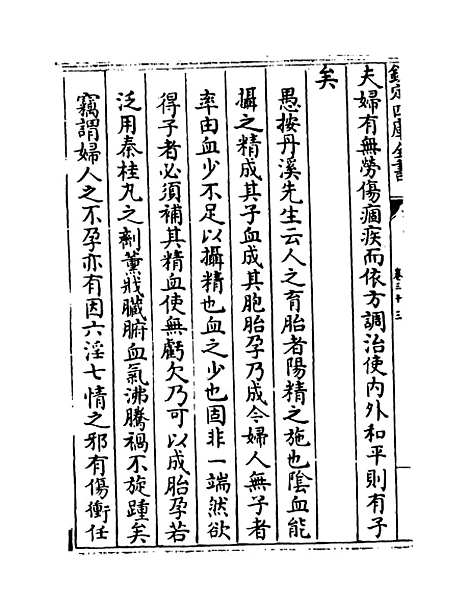 欽定四庫全書
卷三十三
夫婦有無勞傷痼疾而依方調治使內外和平則有子
矣
愚按丹溪先生云人之育胎者陽精之施也隂血能
攝之精成其子血成其胞胎孕乃成今婦人無子者
率由血少不足以攝精也血之少也固非一端然欲
得子者必須補其精血使無虧欠乃可以成胎孕若
泛用秦桂丸之劑薰戕臟腑血氣沸騰禍不旋踵矣
竊謂婦人之不孕亦有因六淫七情之邪有傷衝任